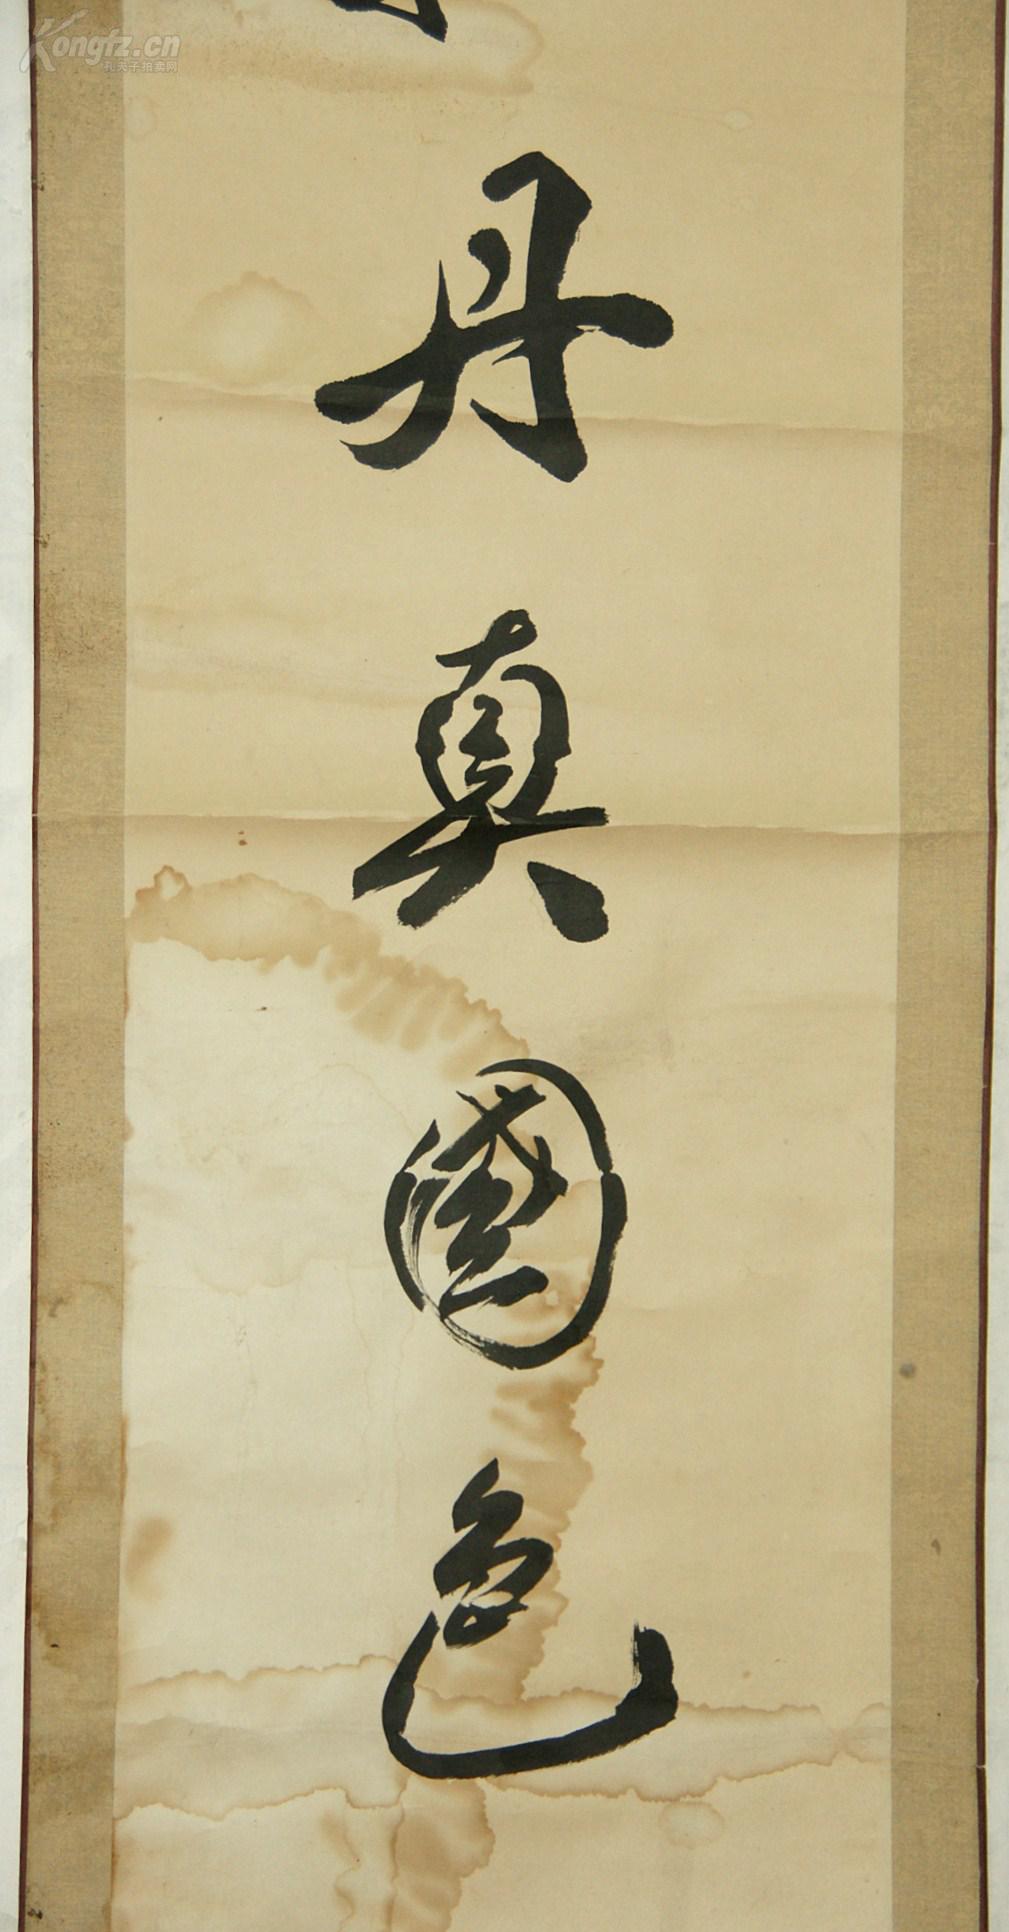 Kongfz.cn
孔夫子拍卖网
丹真國色